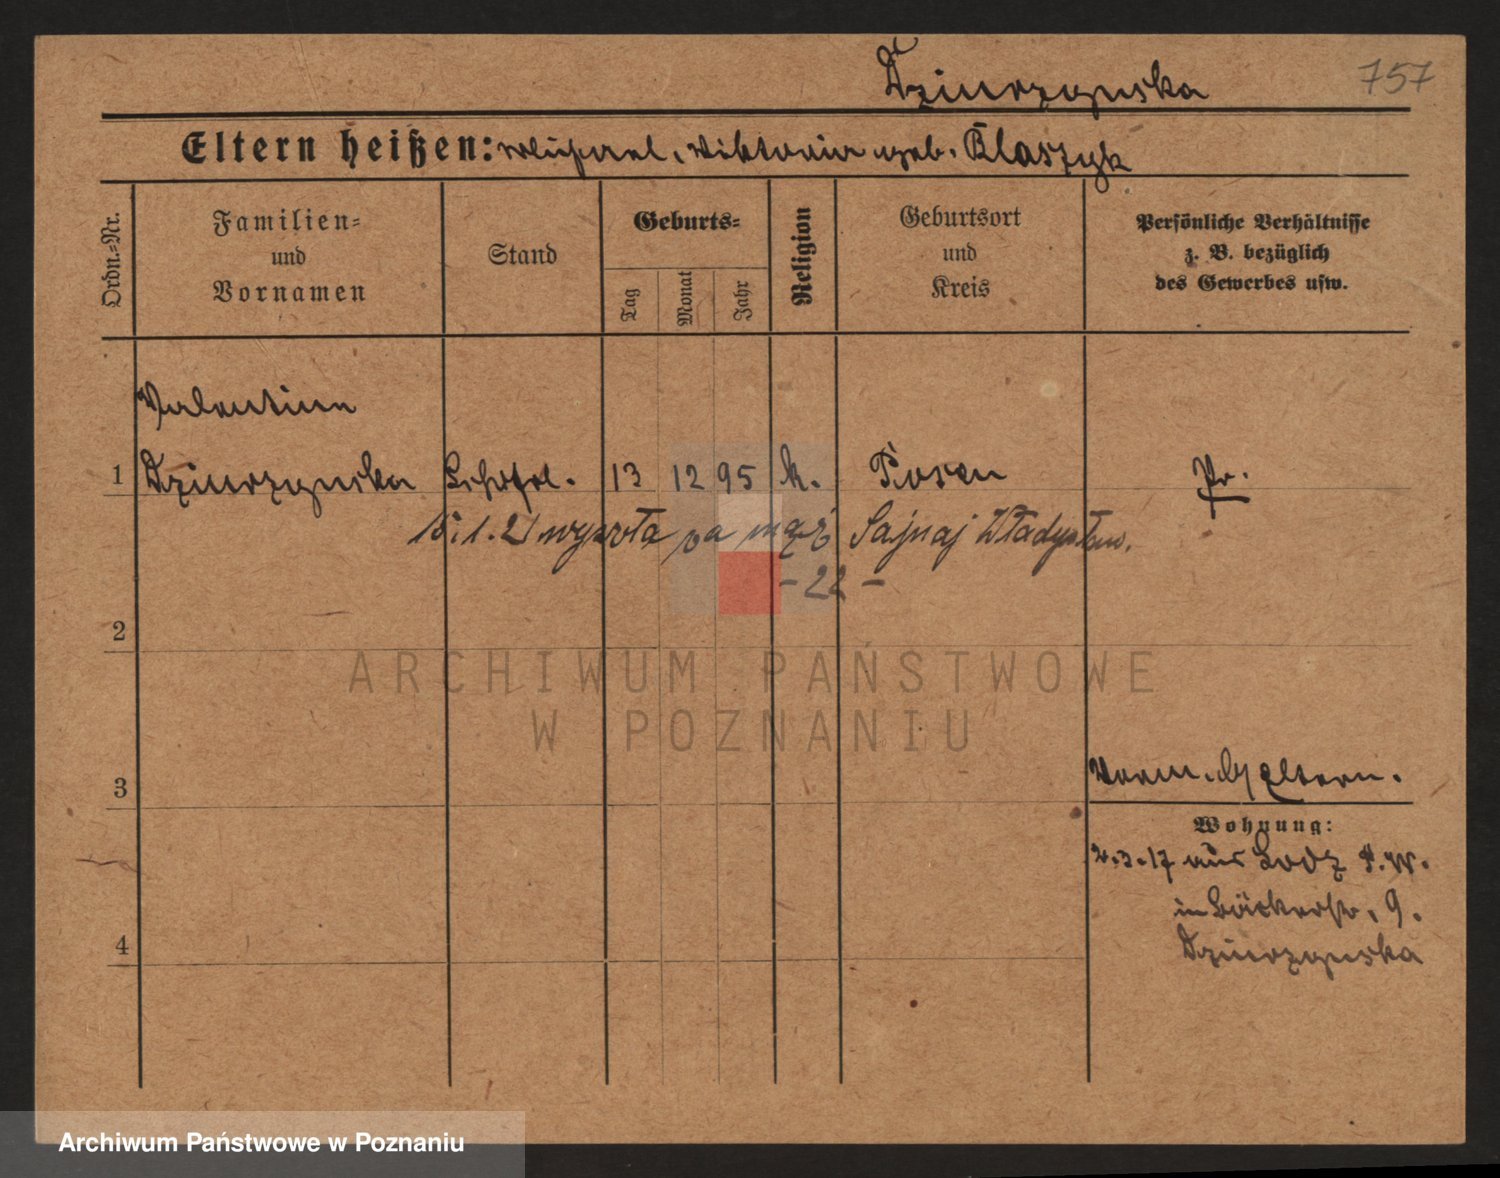 Dziurzynska 757
Eltern heißen: Michael, Viktoria geb. Blaszyk
Ordn.-Nr.
Familien-
und
Vornamen
Stand
Geburts-
Tag
Monat
Jahr
Religion
Geburtsort
und
Kreis
Persönliche Verhältnisse
z. B. bezüglich
des Gewerbes usw.
Valentina
1 Dziurzynska 13 12 95 k. Posen Pr.
15.1.21 wyszła za mąż Sajnaj Władysław.
- 22 -
2
ARCHIWUM PAŃSTWOWE
W POZNANIU
3
Eltern.
Wohnung:
2.3.17 aus Lodz
in Bäckerstr. 9.
4
Dziurzynska
Archiwum Państwowe w Poznaniu